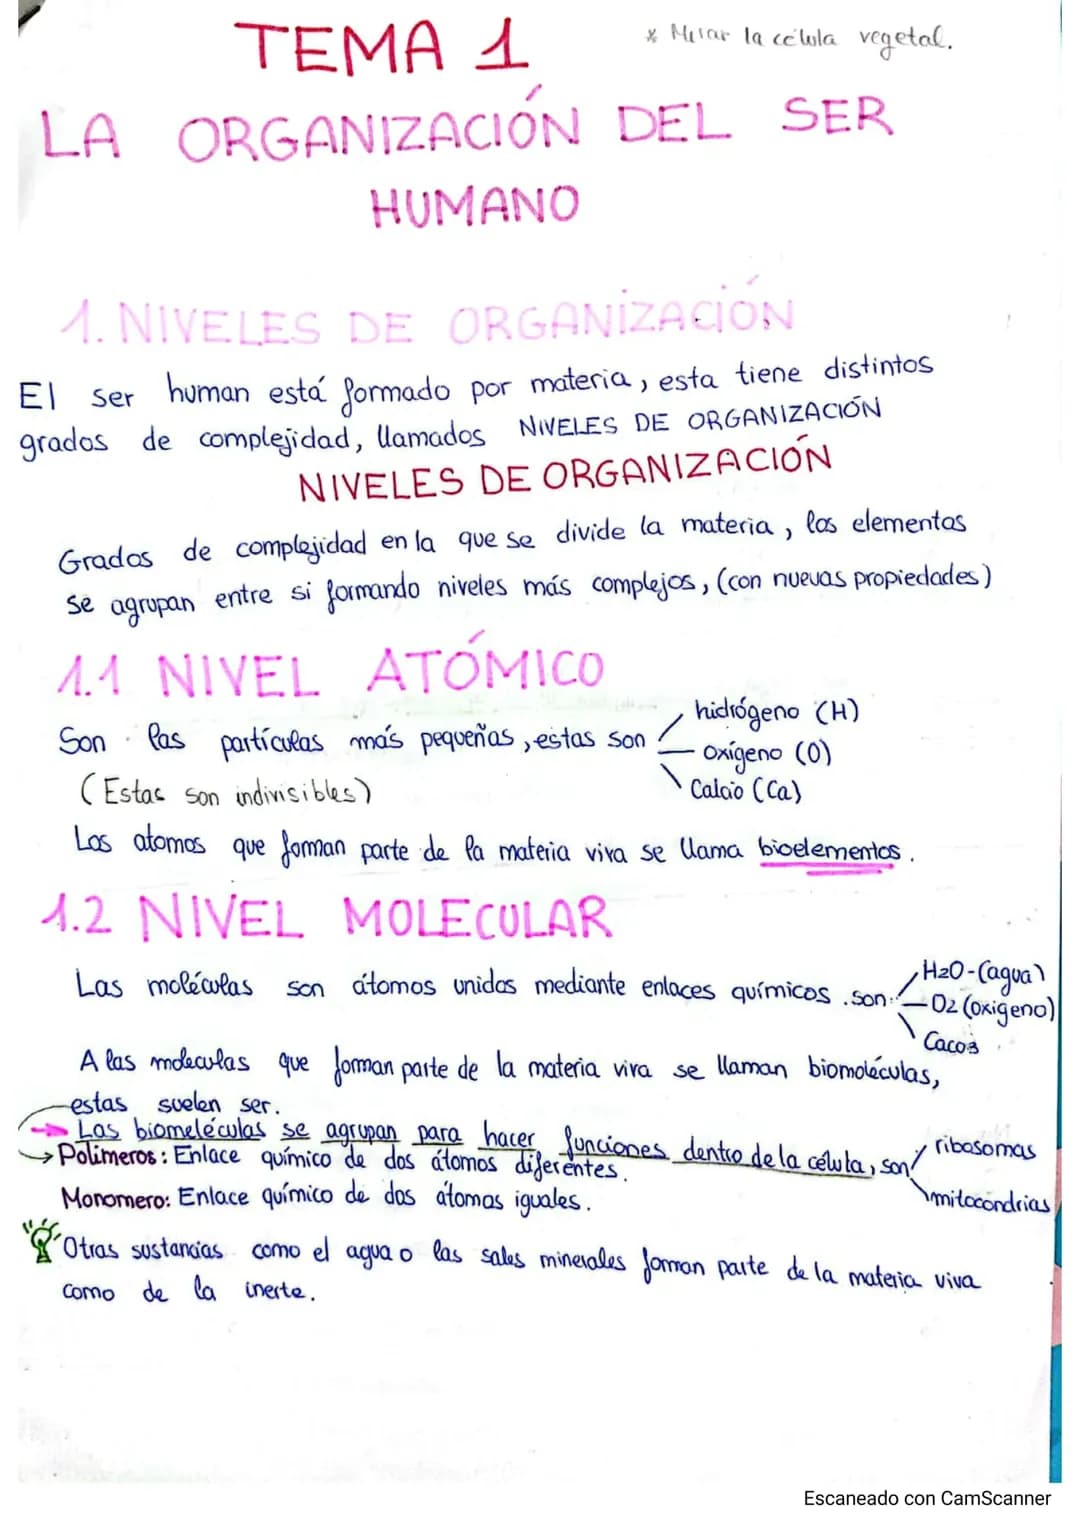 TEMA 1
* Mirar la célula vegetal.
LA ORGANIZACIÓN DEL SER
HUMANO
1. NIVELES DE ORGANIZACIÓN
El ser human está formado por materia, esta tiene distintos
grados de complejidad, llamados NIVELES DE ORGANIZACIÓN
NIVELES DE ORGANIZACIÓN
Grados de complejidad en la que se divide la materia, los elementos
se agrupan entre si formando niveles más complejos, (con nuevas propiedades)
1.1 NIVEL ATÓMICO
Son las partículas más pequeñas, estas son
hidrógeno (H)
oxígeno (O)
Calcio (Ca)
(Estas son indivisibles)
Los atomos que forman parte de la materia viva se llama bioelementos.
1.2 NIVEL MOLECULAR
Las moléculas son átomos unidos mediante enlaces químicos. son:
H2O-(agua)
O2 (oxigeno)
Caco3
A las moleculas que forman parte de la materia viva se llaman biomoléculas,
estas suelen ser.
Las biomeléculas se agrupan para hacer funciones dentro de la célula, son
ribosomas
mitocondrias
Polímeros: Enlace químico de dos átomos diferentes.
Monomero: Enlace químico de dos átomos iguales.
Otras sustancias como el agua o las sales minerales forman parte de la materia viva
como de la inerte.
Escaneado con CamScanner